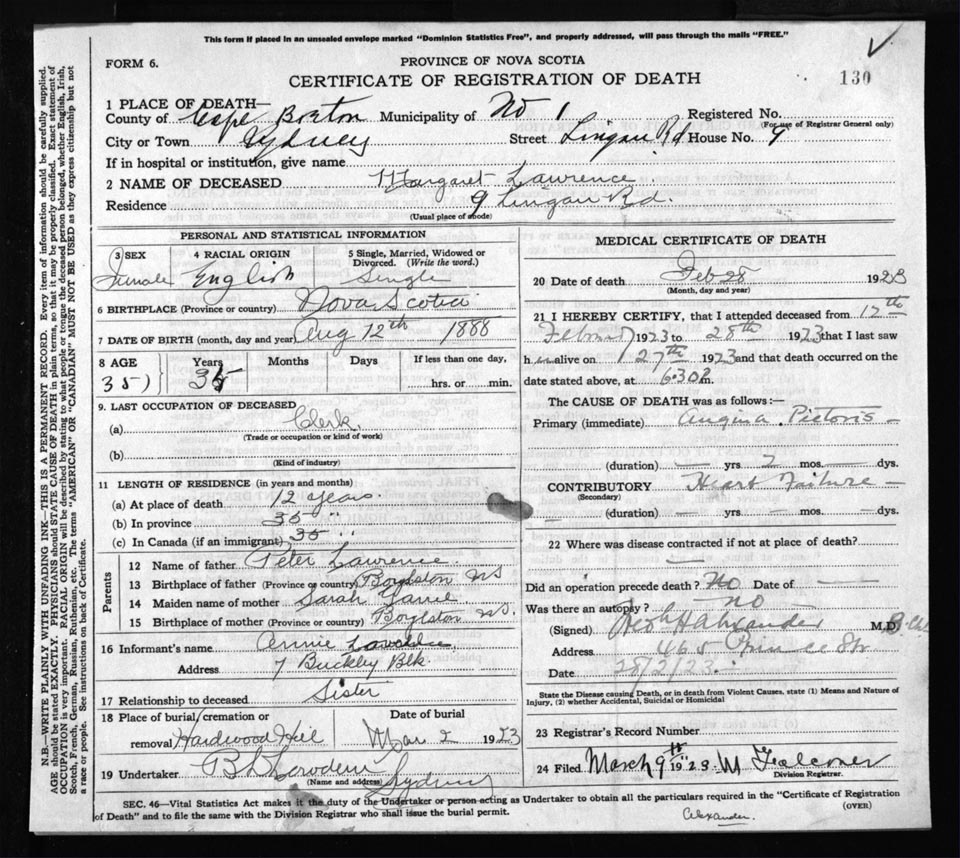 This form if placed in an unsealed envelope marked "Dominion Statistics Free", and properly addressed, will pass through the mails "FREE."
FORM 6.
PROVINCE OF NOVA SCOTIA
CERTIFICATE OF REGISTRATION OF DEATH
130
1 PLACE OF DEATH—
County of Cape Breton Municipality of No 1 Registered No.
(For use of Registrar General only)
City or Town Sydney Street Lingan Rd House No. 9
If in hospital or institution, give name
2 NAME OF DECEASED Margaret Lawrence
Residence 9 Lingan Rd.
(Usual place of abode)
PERSONAL AND STATISTICAL INFORMATION
3 SEX Female
4 RACIAL ORIGIN English
5 Single, Married, Widowed or Divorced. (Write the word.) Single
6 BIRTHPLACE (Province or country) Nova Scotia
7 DATE OF BIRTH (month, day and year) Aug 12th 1888
8 AGE 35) Years 35 Months Days If less than one day, hrs. or min.
9. LAST OCCUPATION OF DECEASED
(a) Clerk
(Trade or occupation or kind of work)
(b)
(Kind of industry)
11 LENGTH OF RESIDENCE (in years and months)
(a) At place of death 12 years
(b) In province 35 "
(c) In Canada (if an immigrant) 35 "
Parents
12 Name of father Peter Lawrence
13 Birthplace of father (Province or country) Boylston NS
14 Maiden name of mother Sarah
15 Birthplace of mother (Province or country) Boylston NS.
16 Informant's name Annie
Address 7 Buckley Blk.
17 Relationship to deceased Sister
18 Place of burial, cremation or removal Hardwood Hill
Date of burial Mar 2 1923
19 Undertaker Sydney
(Name and address)
MEDICAL CERTIFICATE OF DEATH
20 Date of death Feb 28 1923
(Month, day and year)
21 I HEREBY CERTIFY, that I attended deceased from 12th
1923 to 28th 1923 that I last saw
h er alive on 27th 1923 and that death occurred on the
date stated above, at 6.30 P.m.
The CAUSE OF DEATH was as follows:—
Primary (immediate) Angina Pictoris —
(duration) — yrs 2 mos. — dys.
CONTRIBUTORY Heart Failure —
(Secondary)
(duration) — yrs. — mos. — dys.
22 Where was disease contracted if not at place of death?
—
Did an operation precede death? No Date of —
Was there an autopsy? no
(Signed) M.D.
Address 465 Prince St
Date 28/2/23.
State the Disease causing Death, or in death from Violent Causes, state (1) Means and Nature of Injury, (2) whether Accidental, Suicidal or Homicidal
23 Registrar's Record Number
24 Filed March 9th 1923 M Falconer
Division Registrar.
SEC. 46—Vital Statistics Act makes it the duty of the Undertaker or person acting as Undertaker to obtain all the particulars required in the "Certificate of Registration
of Death" and to file the same with the Division Registrar who shall issue the burial permit.
(OVER)
Alexander.
N.B.—WRITE PLAINLY WITH UNFADING INK—THIS IS A PERMANENT RECORD. Every item of information should be carefully supplied.
AGE should be stated EXACTLY. PHYSICIANS should STATE CAUSE OF DEATH in plain terms, so that it may be properly classified. Exact statement of
OCCUPATION is very important. RACIAL ORIGIN will be described by stating to what people or tongue the deceased person belonged, whether English, Irish,
Scotch, French, German, Russian, Ruthenian, etc. The terms "AMERICAN" or "CANADIAN" MUST NOT BE USED as they express citizenship but not
a race or people. See instructions on back of Certificate.